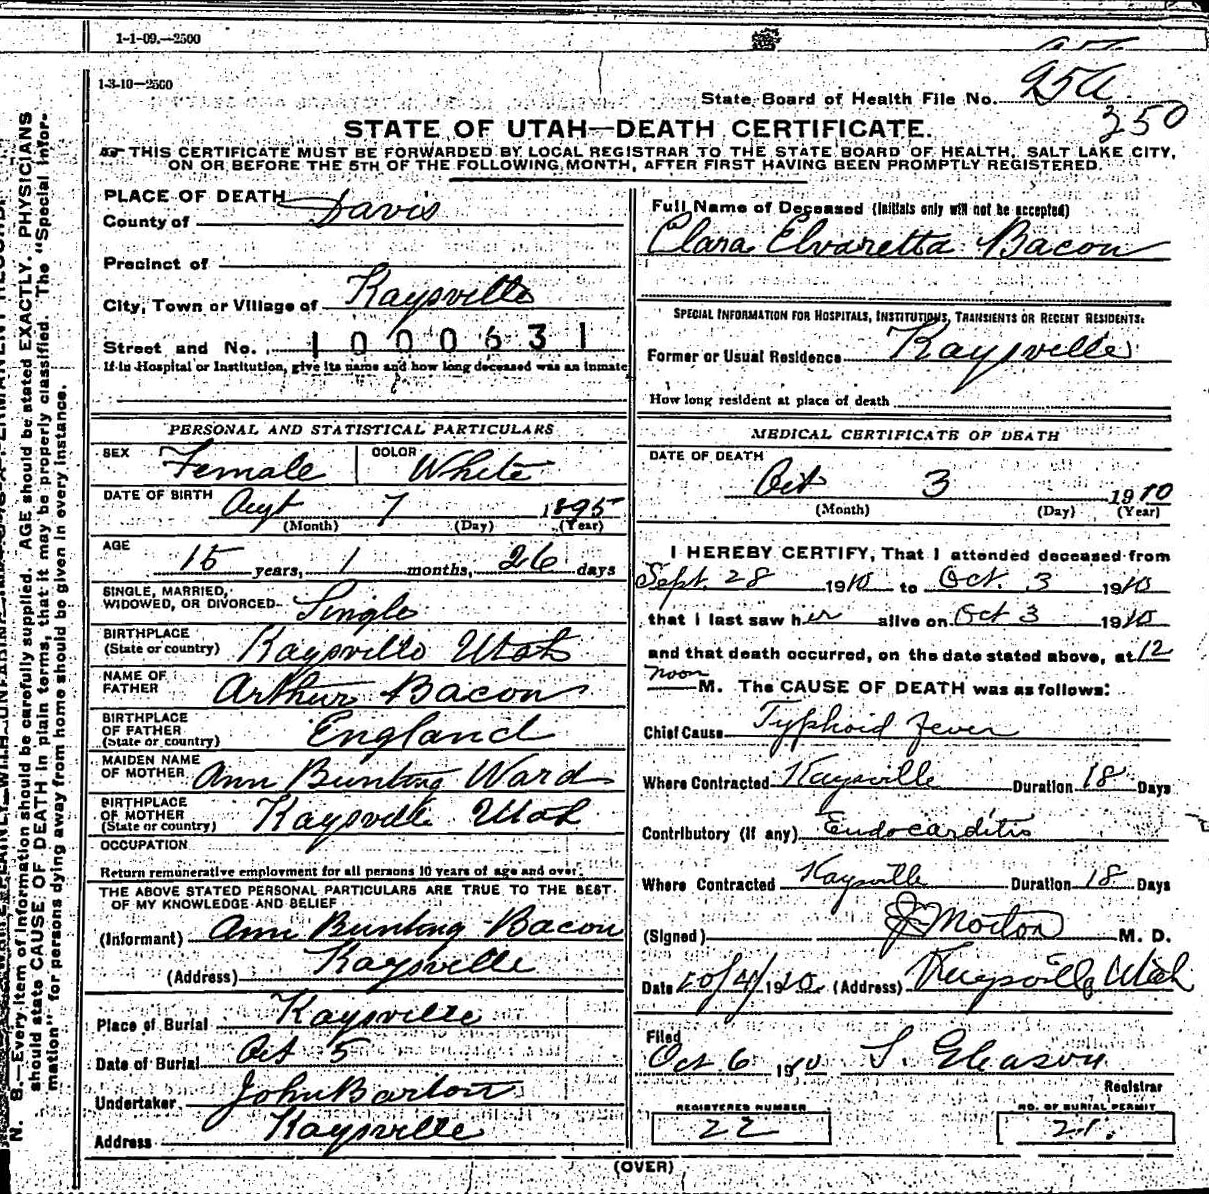 1-1-09.—2500
1-3-10—2500
State Board of Health File No.
250
STATE OF UTAH—DEATH CERTIFICATE.
THIS CERTIFICATE MUST BE FORWARDED BY LOCAL REGISTRAR TO THE STATE BOARD OF HEALTH, SALT LAKE CITY,
ON OR BEFORE THE 5TH OF THE FOLLOWING MONTH, AFTER FIRST HAVING BEEN PROMPTLY REGISTERED.
PLACE OF DEATH
County of Davis
Precinct of
City, Town or Village of Kaysville
Street and No. 1000631
If in Hospital or Institution, give its name and how long deceased was an inmate
PERSONAL AND STATISTICAL PARTICULARS
SEX Female COLOR White
DATE OF BIRTH Augt 7 1895
(Month) (Day) (Year)
AGE
15 years, 1 months, 26 days
SINGLE, MARRIED,
WIDOWED, OR DIVORCED Single
BIRTHPLACE
(State or country) Kaysville Utah
NAME OF
FATHER Arthur Bacon
BIRTHPLACE
OF FATHER
(State or country) England
MAIDEN NAME
OF MOTHER Ann Bunting Ward
BIRTHPLACE
OF MOTHER
(State or country) Kaysville Utah
OCCUPATION
Return remunerative employment for all persons 10 years of age and over.
THE ABOVE STATED PERSONAL PARTICULARS ARE TRUE TO THE BEST
OF MY KNOWLEDGE AND BELIEF
(Informant) Ann Bunting Bacon
(Address) Kaysville
Place of Burial Kaysville
Date of Burial Oct 5
Undertaker John Barton
Address Kaysville
Full Name of Deceased (Initials only will not be accepted)
Clara Elvaretta Bacon
SPECIAL INFORMATION FOR HOSPITALS, INSTITUTIONS, TRANSIENTS OR RECENT RESIDENTS:
Former or Usual Residence Kaysville
How long resident at place of death
MEDICAL CERTIFICATE OF DEATH
DATE OF DEATH
Oct 3 1910
(Month) (Day) (Year)
I HEREBY CERTIFY, That I attended deceased from
Sept. 28 1910 to Oct. 3 1910
that I last saw her alive on Oct 3 1910
and that death occurred, on the date stated above, at 12
noon M. The CAUSE OF DEATH was as follows:
Chief Cause Typhoid Fever
Where Contracted Kaysville Duration 18 Days
Contributory (if any) Endocarditis
Where Contracted Kaysville Duration 18 Days
(Signed) J Morton M. D.
Date 10/4/1910 (Address) Kaysville Utah
Filed
Oct 6 1910 S. Gleason
Registrar
REGISTERED NUMBER NO. OF BURIAL PERMIT
22 21.
(OVER)
N. B.—Every item of information should be carefully supplied. AGE should be stated EXACTLY. PHYSICIANS
should state CAUSE OF DEATH in plain terms, that it may be properly classified. The "Special Infor-
mation" for persons dying away from home should be given in every instance.